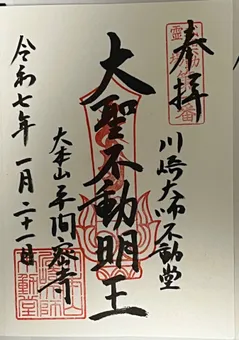 奉拝
川崎大師不動堂
大聖不動明王
大本山平間寺
令和七年一月二十一日